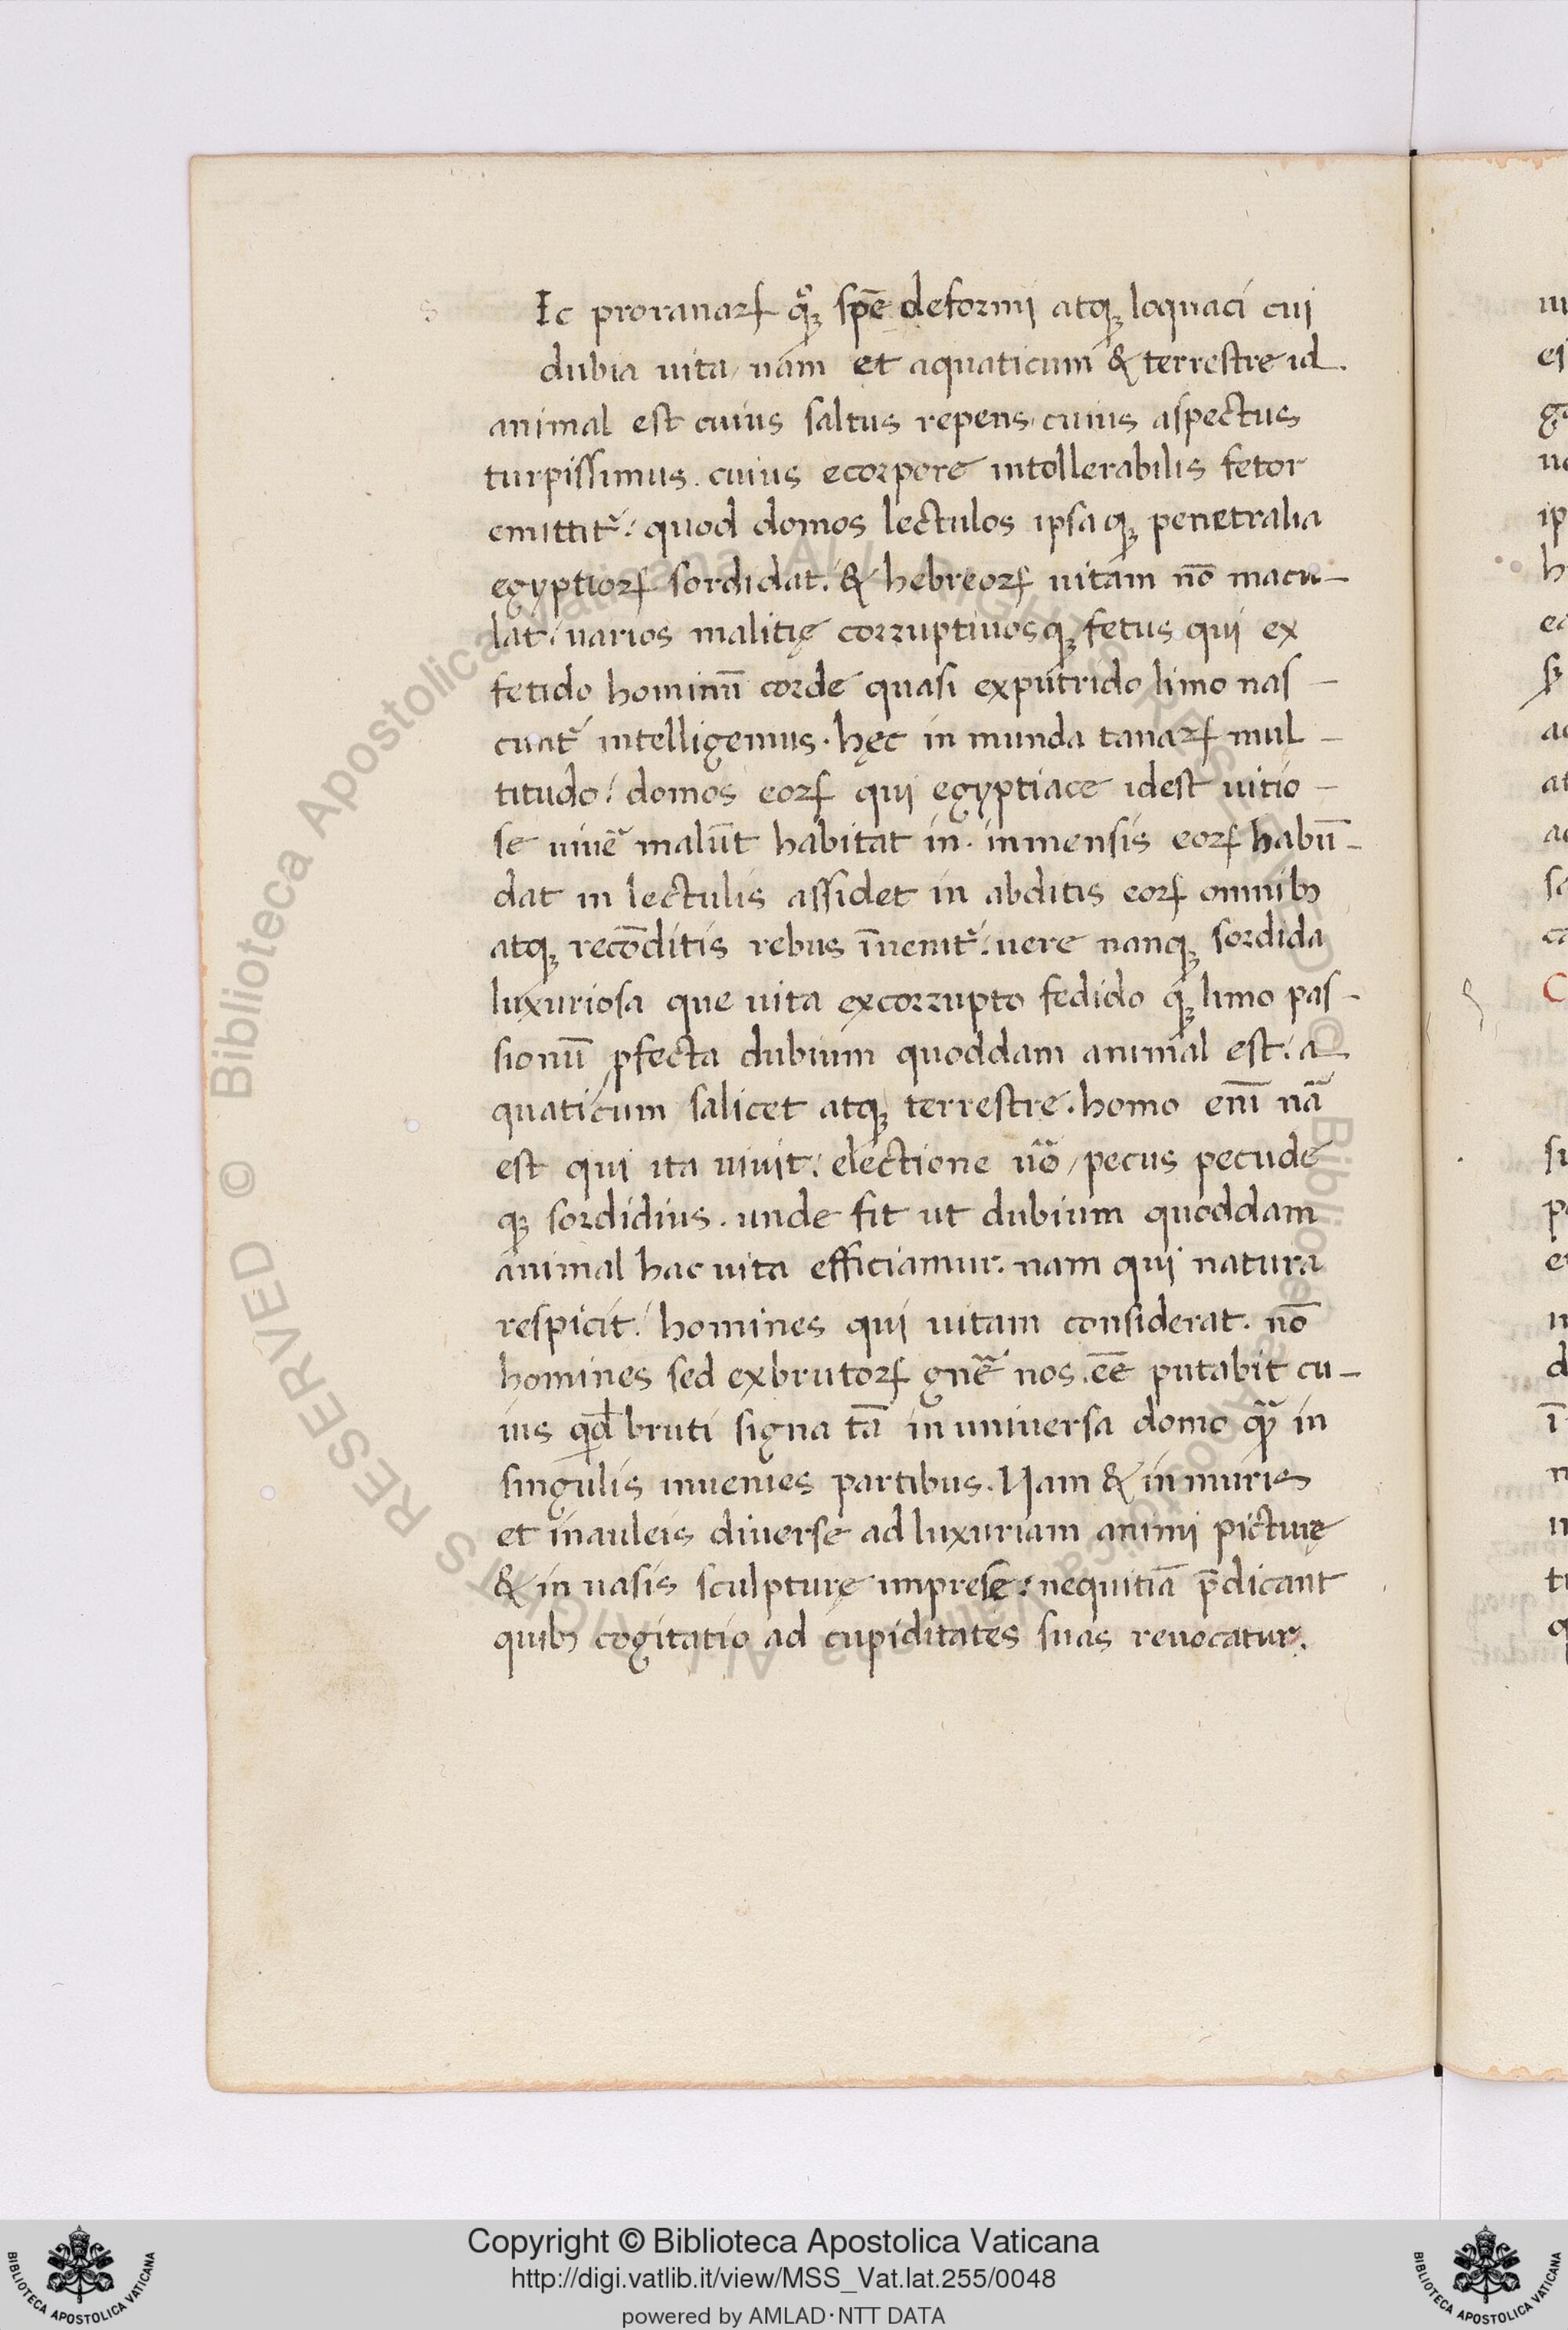 s Ic proranarꝝ qͦꝫ spē deformi atqꝫ loquaci cui
dubia uita, nam et aquaticum & terrestre id.
animal est cuius saltus repens, cuius aspectus
turpissimus. cuius ecorpore intollerabilis fetor
emittit᷑: quod domos lectulos ipsaqꝫ penetralia
egyptiorꝝ sordidat: & hebreorꝝ uitam nō macu-
lat: uarios malitię corruptiuosqꝫ fetus qui ex
fetido hominū corde quasi exputrido limo nas-
cunt᷑ intelligemus. hęc in munda tanarꝝ mul-
titudo: domos eorꝝ qui egyptiace idest uitio-
se uiuē᷑ malūt habitat in. inmensis eorꝝ habū-
dat in lectulis assidet in abditis eorꝝ omnibꝫ
atqꝫ recōditis rebus īuenit᷑: uere nanqꝫ sordida
luxuriosa que uita excorrupto fedido qꝫ limo pas-
sionū ꝑfecta dubium quoddam animal est: a-
quaticum salicet atqꝫ terrestre. homo enī nã
est qui ita uiuit: electione uõ, pecus pecude
qꝫ sordidius. unde fit ut dubium quoddam
animal hac uita efficiamur. nam qui natura
respicit: homines qui uitam considerat. nō
homines sed exbrutorꝝ gnẽ nos. ēē putabit cu-
ius qd bruti signa tā in uniuersa domo qꝫ̃ in
singulis inuenies partibus. Nam & in muris
et inauleis diuerse ad luxuriam animi picturę
& in uasis sculpturę imprese: nequitiā p̄dicant
quibꝫ cogitatio ad cupiditates suas reuocatur.
C
© Biblioteca Apostolica Vaticana ALL RIGHTS RESERVED
© Biblioteca Apostolica Vaticana ALL RIGHTS RESERVED
Copyright © Biblioteca Apostolica Vaticana
http://digi.vatlib.it/view/MSS_Vat.lat.255/0048
powered by AMLAD·NTT DATA
BIBLIOTECA APOSTOLICA VATICANA
BIBLIOTECA APOSTOLICA VATICANA